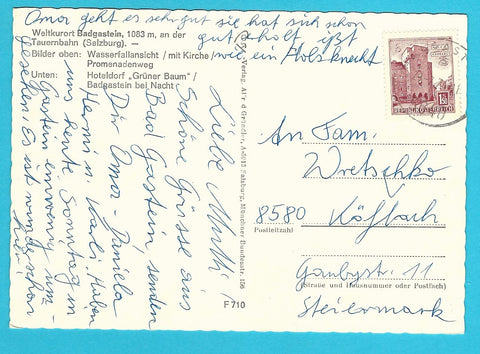 Omar geht es sehr gut sie hat sich schon
gut erholt ißt
wie ein Holzknecht
Weltkurort Badgastein, 1083 m, an der
Tauernbahn (Salzburg). —
Bilder oben: Wasserfallansicht / mit Kirche /
Promenadenweg
Unten: Hoteldorf „Grüner Baum" /
Badgastein bei Nacht
Liebe Mutti!
Schöne Grüsse aus
Bad Gastein senden
Dir Oma - Daniela
Hermi u. Karli. Haben
uns heute Sonntag in
Gastein ein wenig um-
gesehen. Es ist wunderschön
hier!
Verlag, A-5010 Salzburg, Münchner Bundesstr. 156
F 710
REPUBLIK ÖSTERREICH
An Fam.
Wretschko
8580 Köflach
Postleitzahl
11
(Straße und Hausnummer oder Postfach)
Steiermark